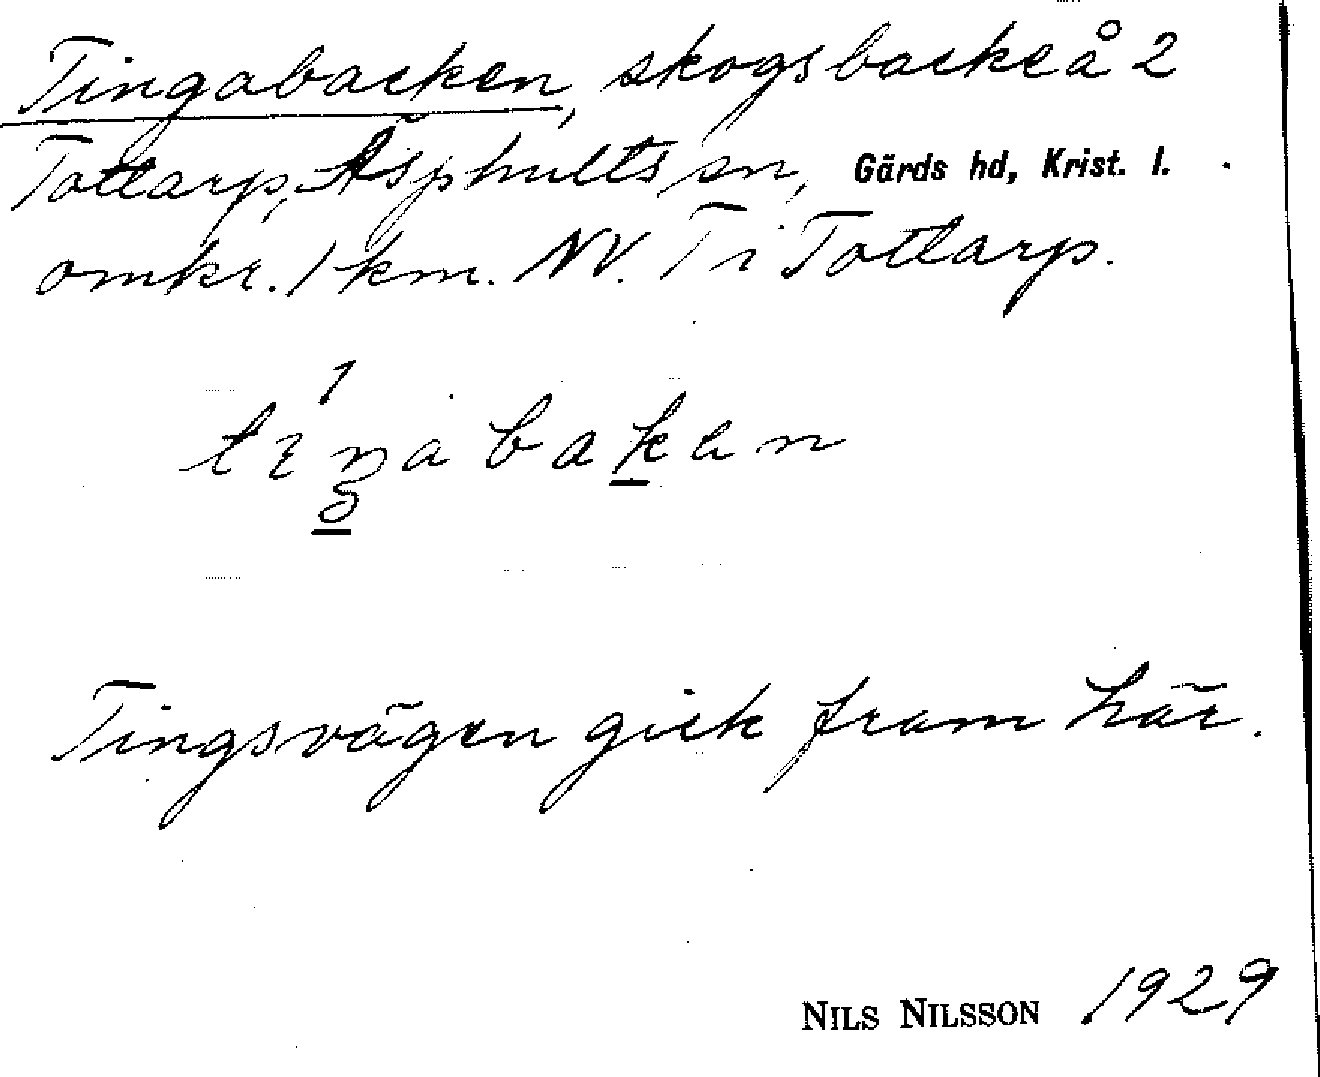 Tingabacken, skogsbacke å 2
Tottarp, Äsphults sn, Gärds hd, Krist. l.
omkr. 1 km. NV. Ti Tottarp.
Tingsvägen gick fram här.
NILS NILSSON 1929